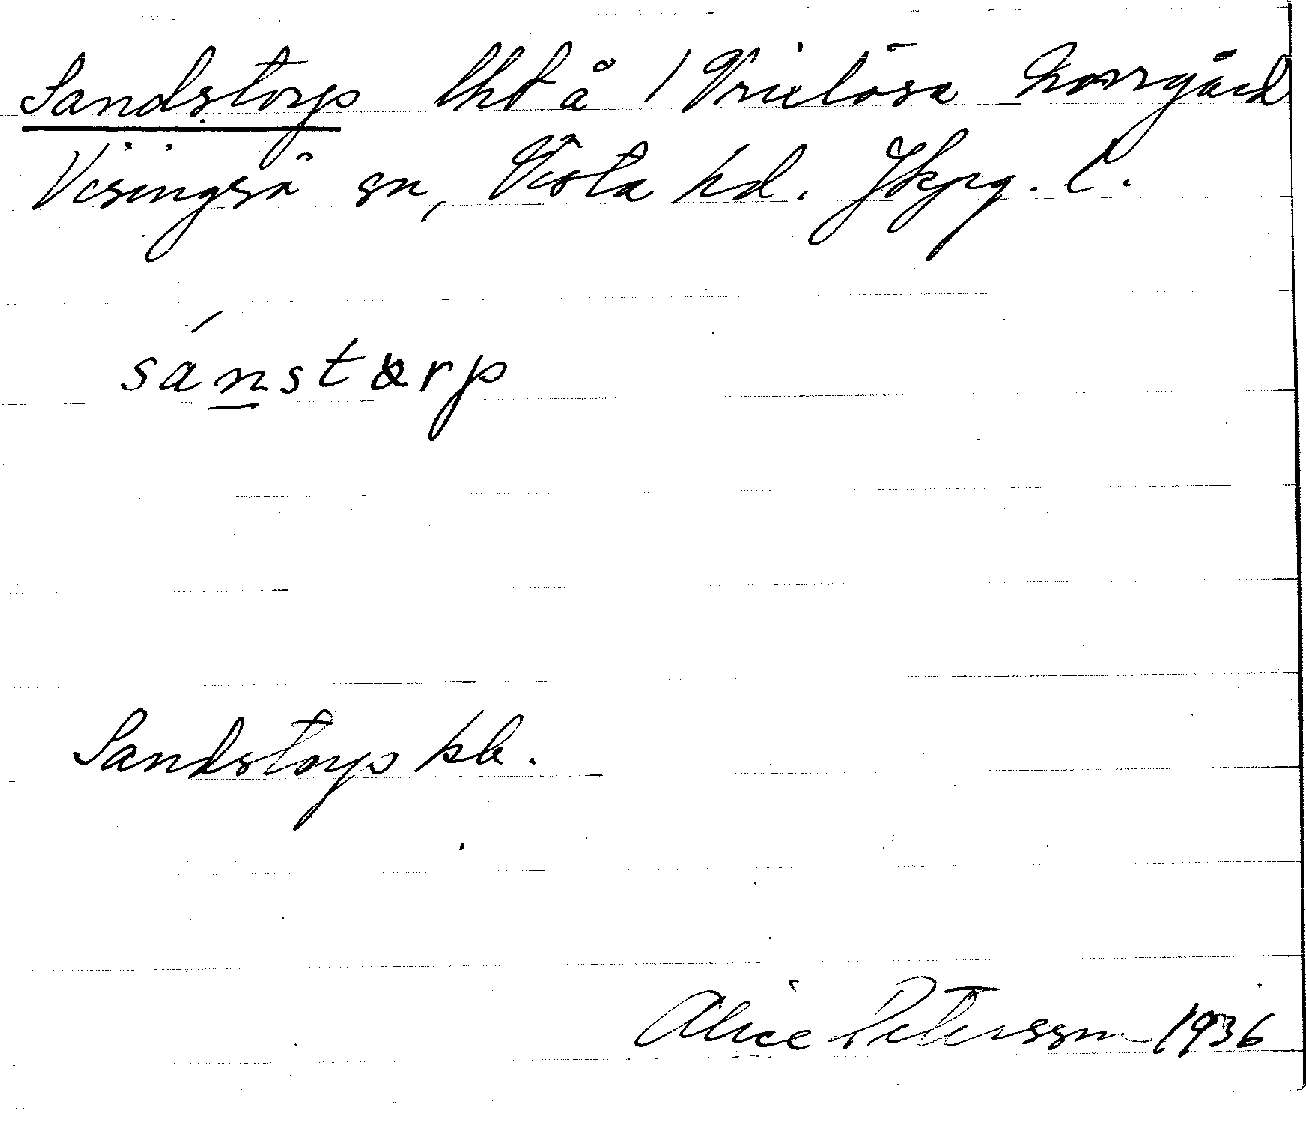 Sandstorp lht å 1 Vrixlösa Norrgård
Visingsö sn, Vista hd. Jkpg. l.
sánstɷrp
Sandstorp kb.
Alice Petersson 1936